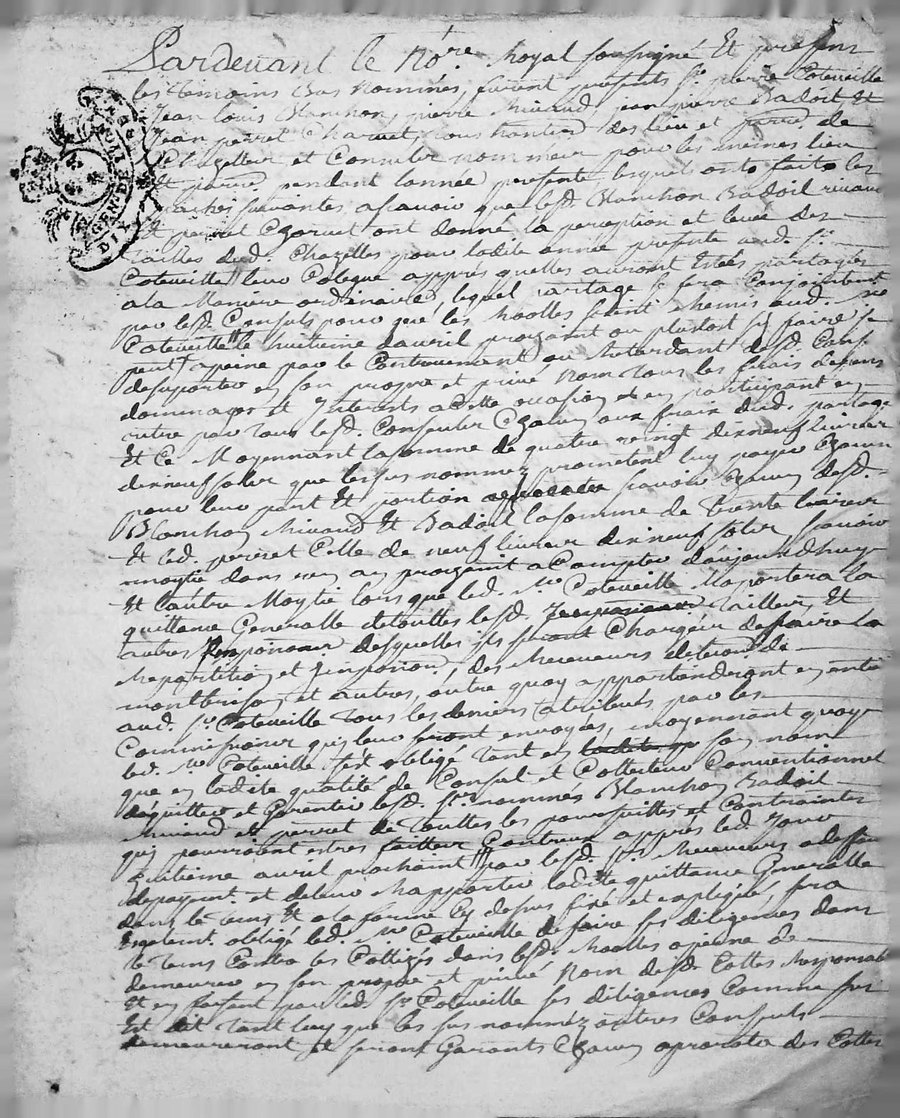 GEN. DE LION
DIX
Pardevant le No.re Royal soussigné Et presens
les temoins Bas Nommés, furent presents Sr. pierre Coteveille
Jean Louis Blanchon, pierre Micaud, Jean pierre Badoil Et
Jean perret Charuet, tous habitants des lieu et parre. de
Chazelles et Consuler nommés pour les memes lieu
Et parre. pendant lannée presente lesquels ont fait les
suivantes asavoir que lesd. Blanchon Badoil micaud
Et perret Charuet ont donné la perception et levée des
tailles dud. Chazelles pour ladite année presente aud. Sr.
Coteveille leur Colegue appres quelles auront Estés partagées
ala Maniere ordinaire, lequel partage se fera Conjointement
par lesd. Consuls pour que les Roolles soient Remis aud. Me
Coteveille le huitieme davril prochaint ou plustost sy faire se
peut apeine par le Contrevenant ou Retardant desd. Cons.
desuporter en son propre et privé Nom tous les frais depens
dommages Et Interets acette occasion et en participant en
outre par tous lesd. Consuler Chacun aux frais dud. partage
Et Ce Moyennant la somme de quatre vingt dixneuf livres
dixneuf soler que les sus nommez prometent luy payer Chacun
pour leur part Et portion savoir Chacun desd.
Blanchon Micaud Et Badoil la somme de trente livres
Et led. perret Celle de neuf livres dixneuf soler savoir
moytie dans un an prochaint a Compter daujourdhuy
Et lautre Moytie lors que led. Me. Coteveille Raportera la
quittance Generalle detouttes lesd. tailles Et
autres desquelles ils seront Chargés defaire la
Repartition et Imposition, des Receveurs delection de
montbrison et autres, outre quoy appartiendront en entier
aud. Sr. Coteveille tous les deniers atribués par les
Commissions quy leur seront envoyées, moyennant quoy
led. Me. Coteveille sest obligé tant en son nom
que en ladite qualité de Consul et Collecteur Conventionnel
daquitter et Garentir lesd. Srs. nommés Blanchon Badoil
micaud et perret de touttes les poursuittes et Contraintes
quy pourroient estres faittes Contreux appres led. jour
huitieme avril prochaint par lesd. Srs. Receveurs adefaut
depayemt. et deleur Rapporter ladte. quittance Generalle
dans le tems Et ala forme Cy dessus fixé et expliqué, sera
Egalemt. obligé led. Me Coteveille de faire ses diligences dans
le tems Contre les Cottizés dans lesd. Roolles apeine de
demeurer en son propre et privé Nom desd. Cottes Responsable
Et en faisant par led. Sr. Coteveille ses diligences Comme sus
Est dit tant luy que les sus nommez autres Consuls
demeureront Et seront Garants Chacun aprorata des Cottes